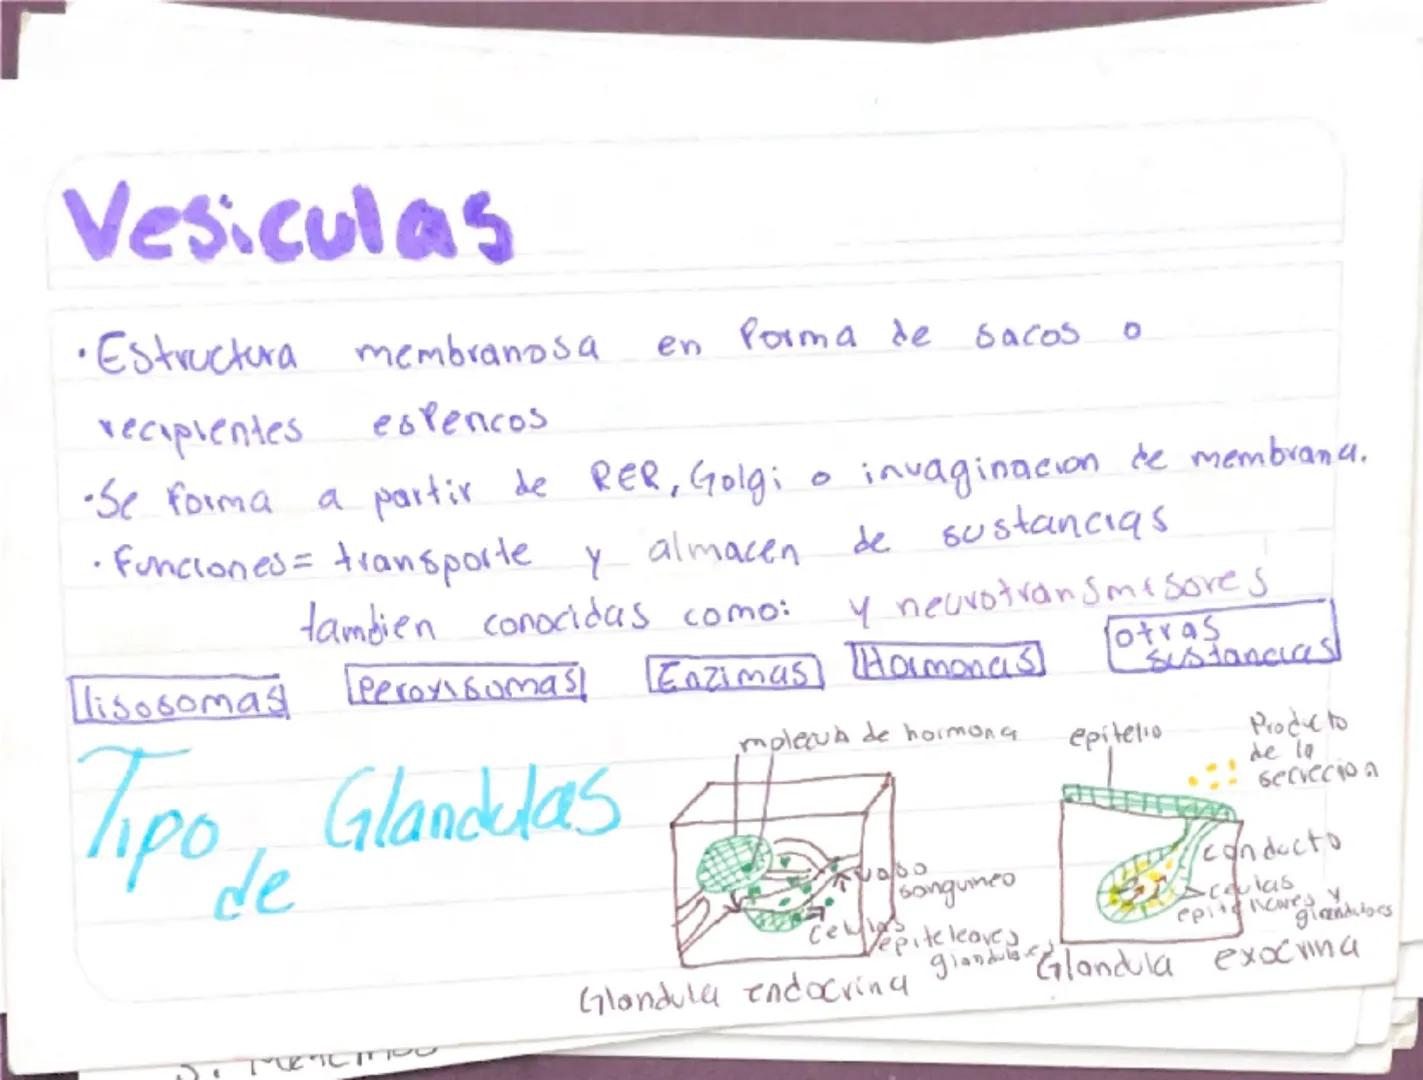 Vesiculas
• Estructura membranosa en forma de sacos o
recipientes esfericos
• Se forma a partir de RER, Golgi o invaginacion de membrana.
• Funciones = transporte y almacen de sustancias
y neurotransmisores
tambien conocidas como:
lisosomas
Peroxisomas
Enzimas
Hormonas
otras
sustancias
Tipo de Glandulas
molecula de hormona
vaso
sanguineo
celulas
epiteleares
glandulares
Glandula endocrina
epitelio
Producto
de la
secrecion
conducto
celulas
epiteleares y
glandulares
Glandula exocrina